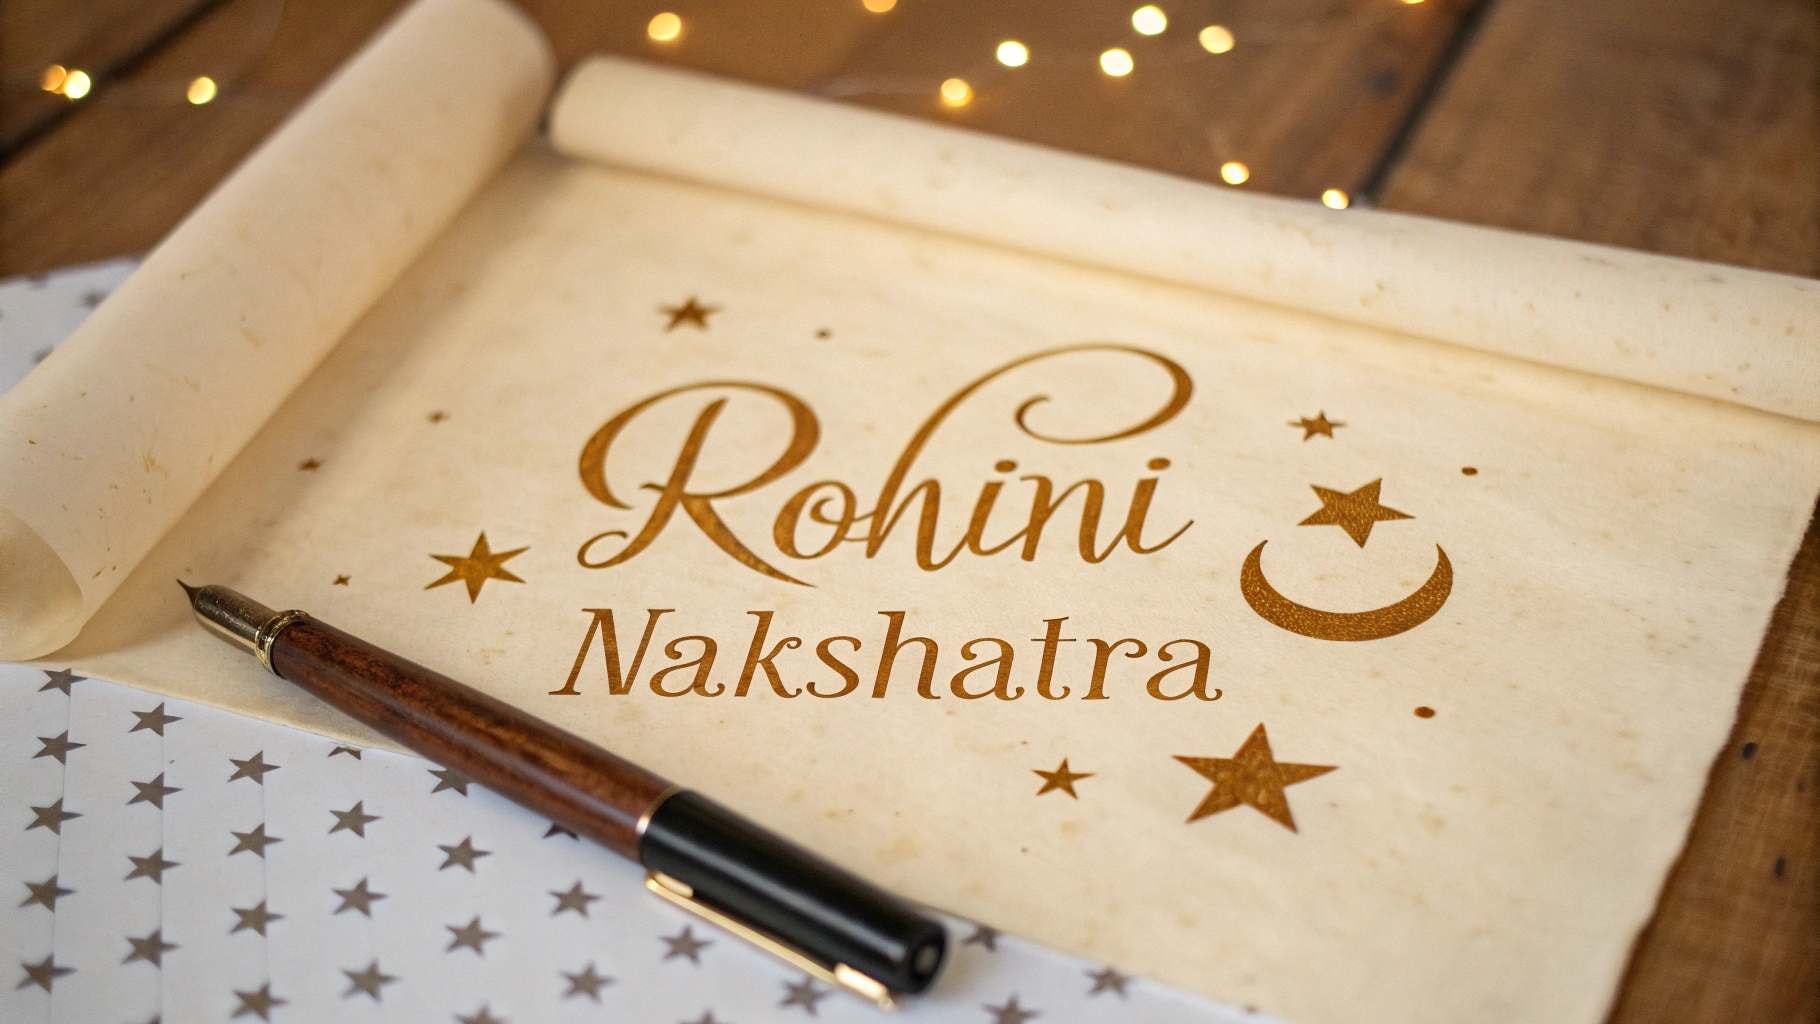 Rohini
Nakshatra